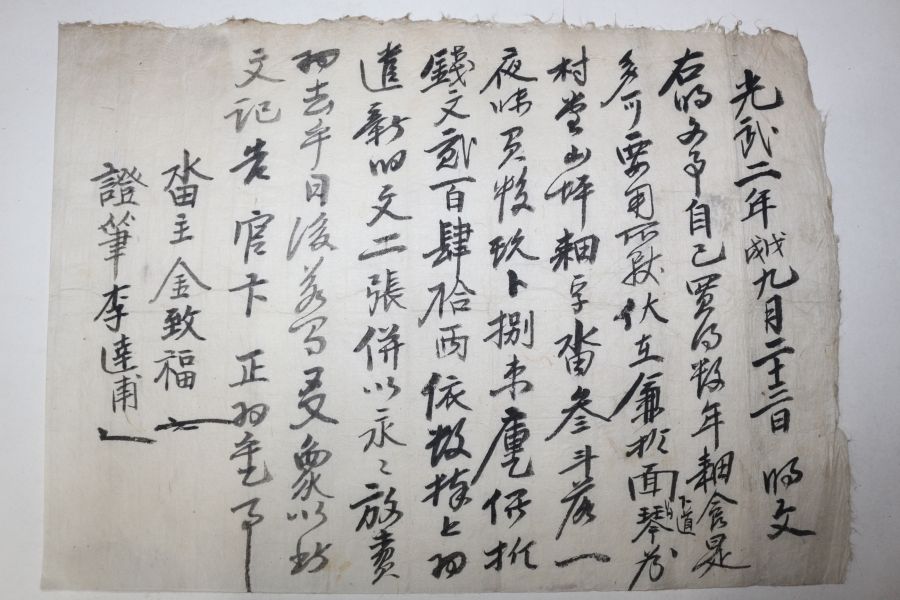 光武二年戊戌九月二十三日 明文
右明文事自己買得數年耕食是
多可要用所致伏在龠於面下道琴谷
村堂山坪耕字畓參斗落一
夜味貝數玖卜捌束㢱価折
錢文貳百肆拾兩依數捧上羽
遣新旧文二張併以永〻放賣
羽去乎日後若有爻象以此
文記告官卞正羽乙事
畓主金致福
證筆李達甫